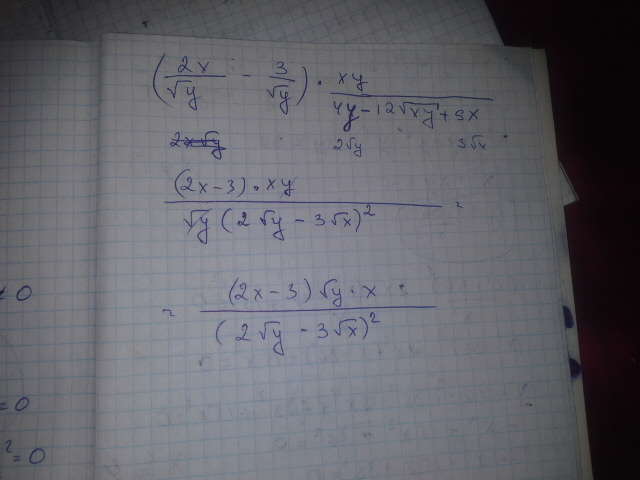 (2x/√y - 3/√y) · xy/(4y - 12√xy + 9x)
2√y 3√x
(2x - 3) · xy / √y (2√y - 3√x)² =
= (2x - 3) √y · x / (2√y - 3√x)²
= 0
= 0
² = 0